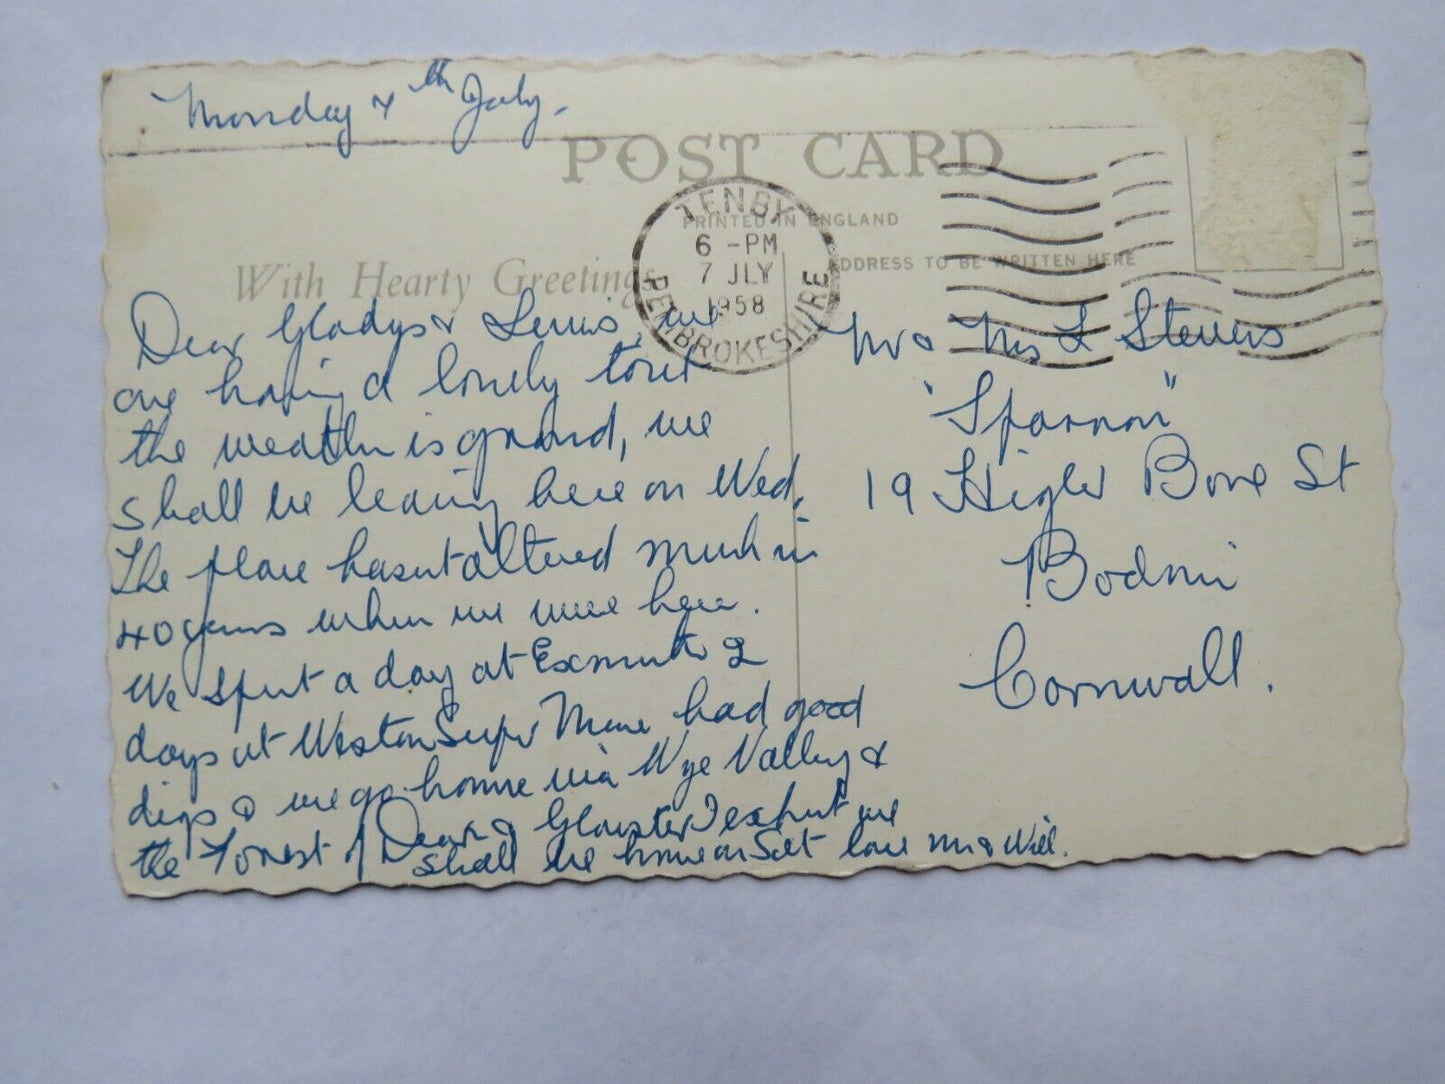 Monday 7th July.
POST CARD
PRINTED IN ENGLAND
ADDRESS TO BE WRITTEN HERE
With Hearty Greetings
TENBY
6 - PM
7 JLY
1958
PEMBROKESHIRE
Dear Gladys & Lewis, we
are having a lovely tour
the weather is grand, we
shall be leaving here on Wed,
The place hasnt altered much in
40 years when we were here.
We spent a day at Exmouth & 2
days at Weston Super Mare had good
digs & we go home via Wye Valley &
the Forest of Dean & Gloucster I expect we
shall be home on Sat love m & Will.
Mr & Mrs L Stevens
"Sparnon"
19 Higher Bore St
Bodmin
Cornwall.